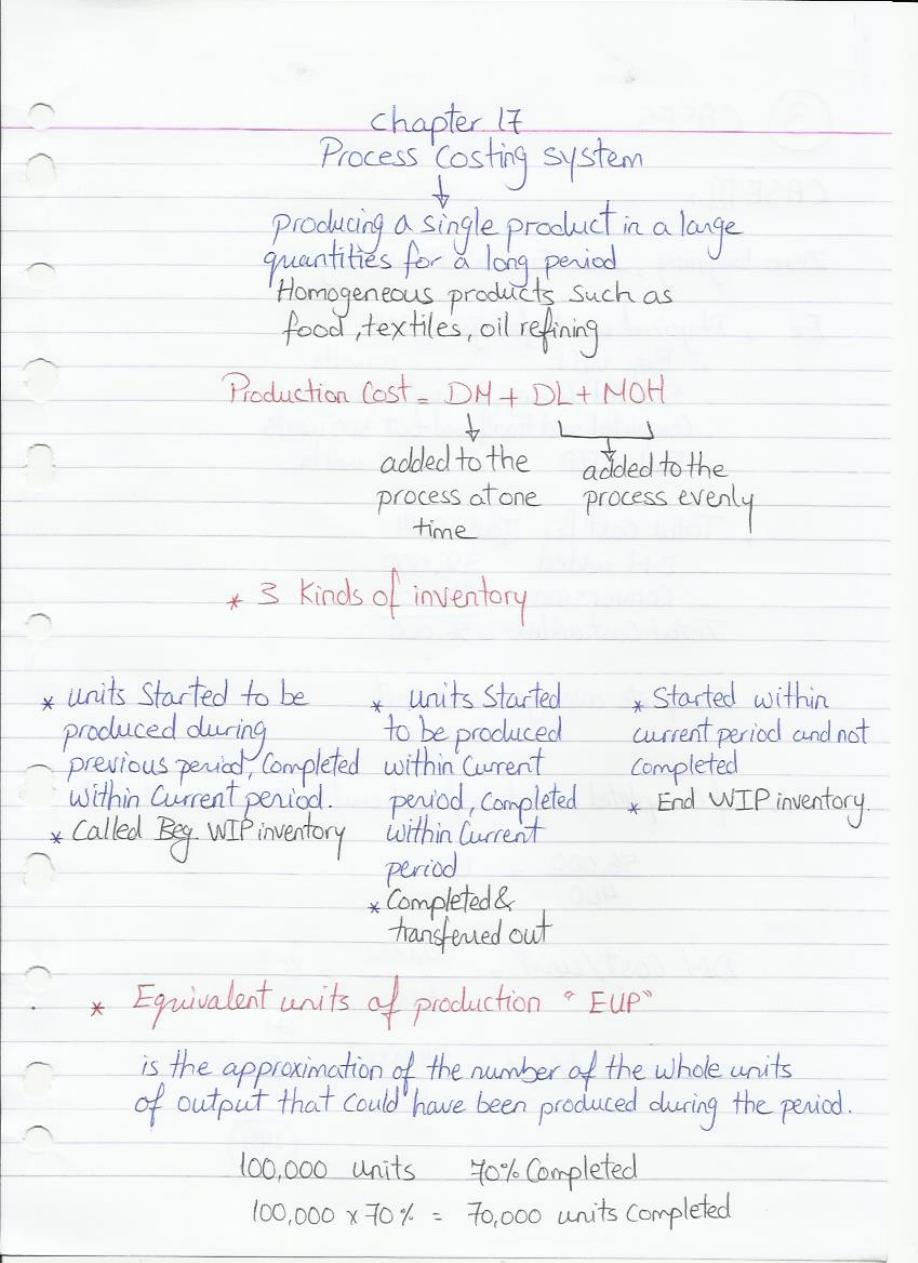 chapter 17
Process Costing system
producing a single product in a large
quantities for a long period
Homogeneous products such as
food, textiles, oil refining
Production Cost = DM + DL + MOH
added to the
process at one
time
added to the
process evenly
* 3 Kinds of inventory
* units Started to be
produced during
previous period, Completed
within Current period.
* Called Beg. WIP inventory
* units Started
to be produced
within Current
period, Completed
within Current
period
* Completed &
transferred out
* Started within
current period and not
Completed
* End WIP inventory.
* Equivalent units of production "EUP"
is the approximation of the number of the whole units
of output that Could have been produced during the period.
100,000 units 70% Completed
100,000 x 70% = 70,000 units Completed